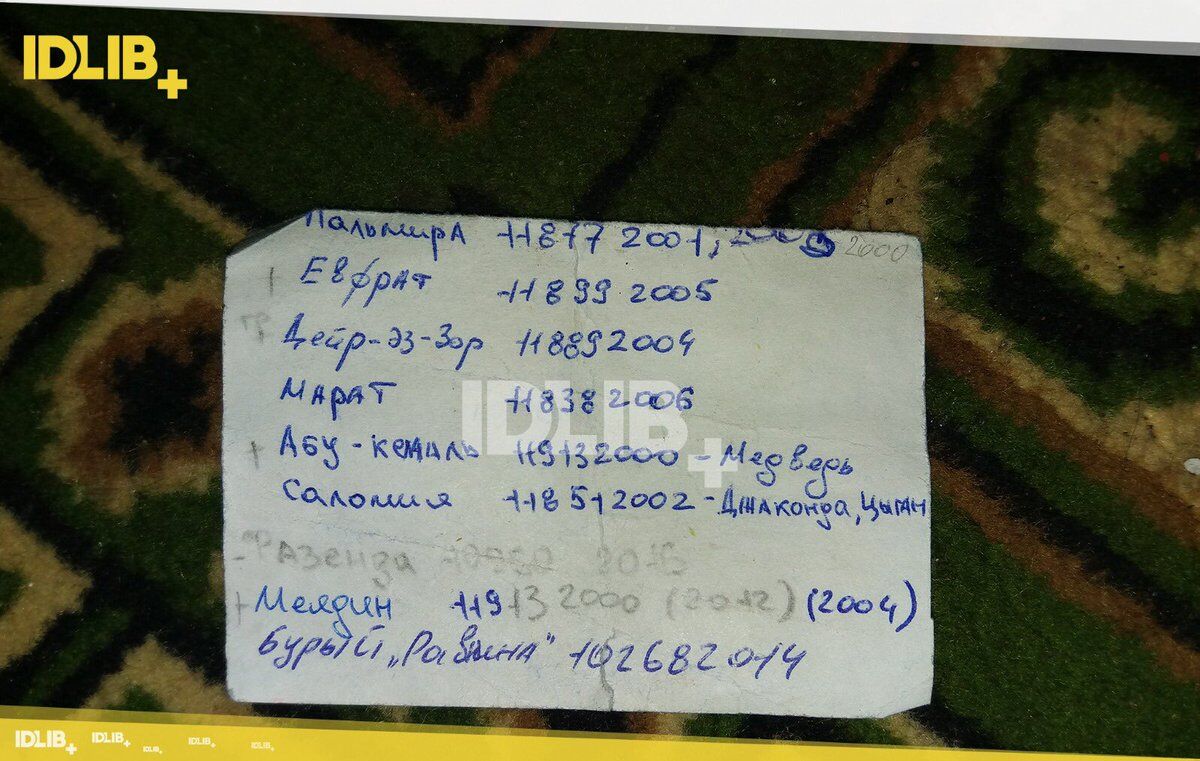 IDLIB+
Пальмира 11817 2001, 2000
Евфрат 11899 2005
Дейр-эз-Зор 11889 2004
Марат 11838 2006
IDLIB+
Абу-кемаль 11913 2000 - Медведь
Саломия 11851 2002 - Джаконда, Цыган
Фазенда 2015
Меядин 11913 2000 (2012) (2004)
Бурый „Равнина" 10268 2014
IDLIB+ IDLIB+ IDLIB+ IDLIB+ IDLIB+